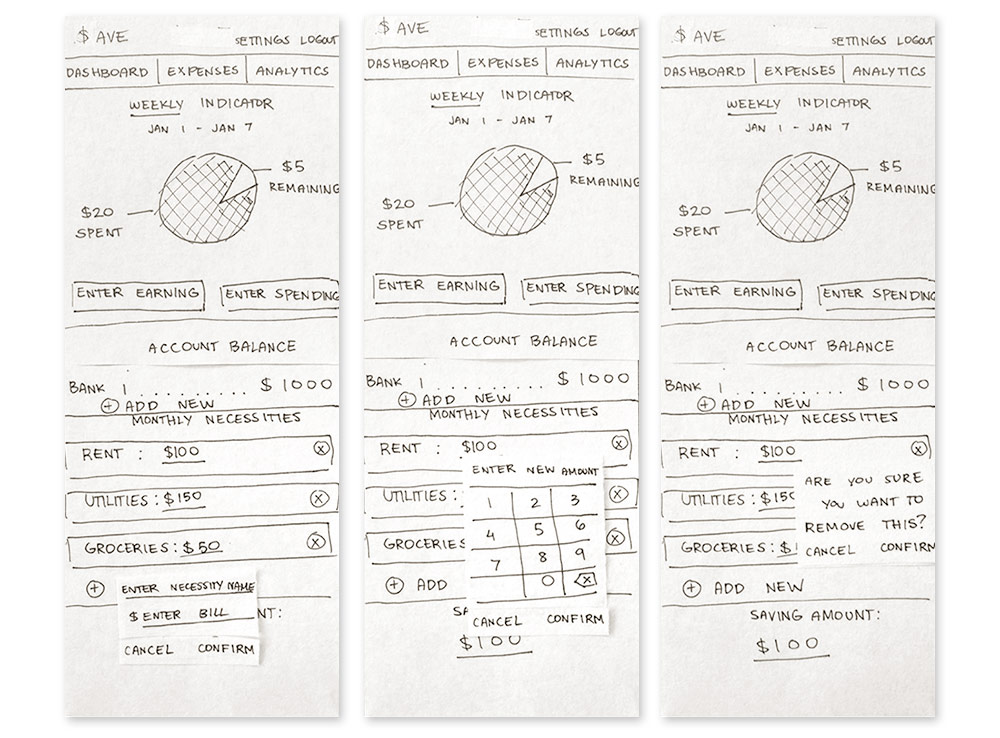 $ AVE
SETTINGS LOGOUT
DASHBOARD EXPENSES ANALYTICS
WEEKLY INDICATOR
JAN 1 - JAN 7
$5
REMAINING
$20
SPENT
ENTER EARNING ENTER SPENDING
ACCOUNT BALANCE
BANK 1 .......... $1000
+ ADD NEW
MONTHLY NECESSITIES
RENT : $100 X
UTILITIES : $150 X
GROCERIES : $50 X
+ ENTER NECESSITY NAME
$ ENTER BILL
NT:
CANCEL CONFIRM
$ AVE
SETTINGS LOGOUT
DASHBOARD EXPENSES ANALYTICS
WEEKLY INDICATOR
JAN 1 - JAN 7
$5
REMAINING
$20
SPENT
ENTER EARNING ENTER SPENDING
ACCOUNT BALANCE
BANK 1 .......... $1000
+ ADD NEW
MONTHLY NECESSITIES
RENT : $100 X
UTILITIES : X
GROCERIES X
+ ADD
ENTER NEW AMOUNT
1 2 3
4 5 6
7 8 9
0 X
SA
CANCEL CONFIRM
$100
$ AVE
SETTINGS LOGOUT
DASHBOARD EXPENSES ANALYTICS
WEEKLY INDICATOR
JAN 1 - JAN 7
$5
REMAINING
$20
SPENT
ENTER EARNING ENTER SPENDING
ACCOUNT BALANCE
BANK 1 .......... $1000
+ ADD NEW
MONTHLY NECESSITIES
RENT : $100 X
UTILITIES : $15
GROCERIES : $
ARE YOU SURE
YOU WANT TO
REMOVE THIS?
CANCEL CONFIRM
+ ADD NEW
SAVING AMOUNT:
$100